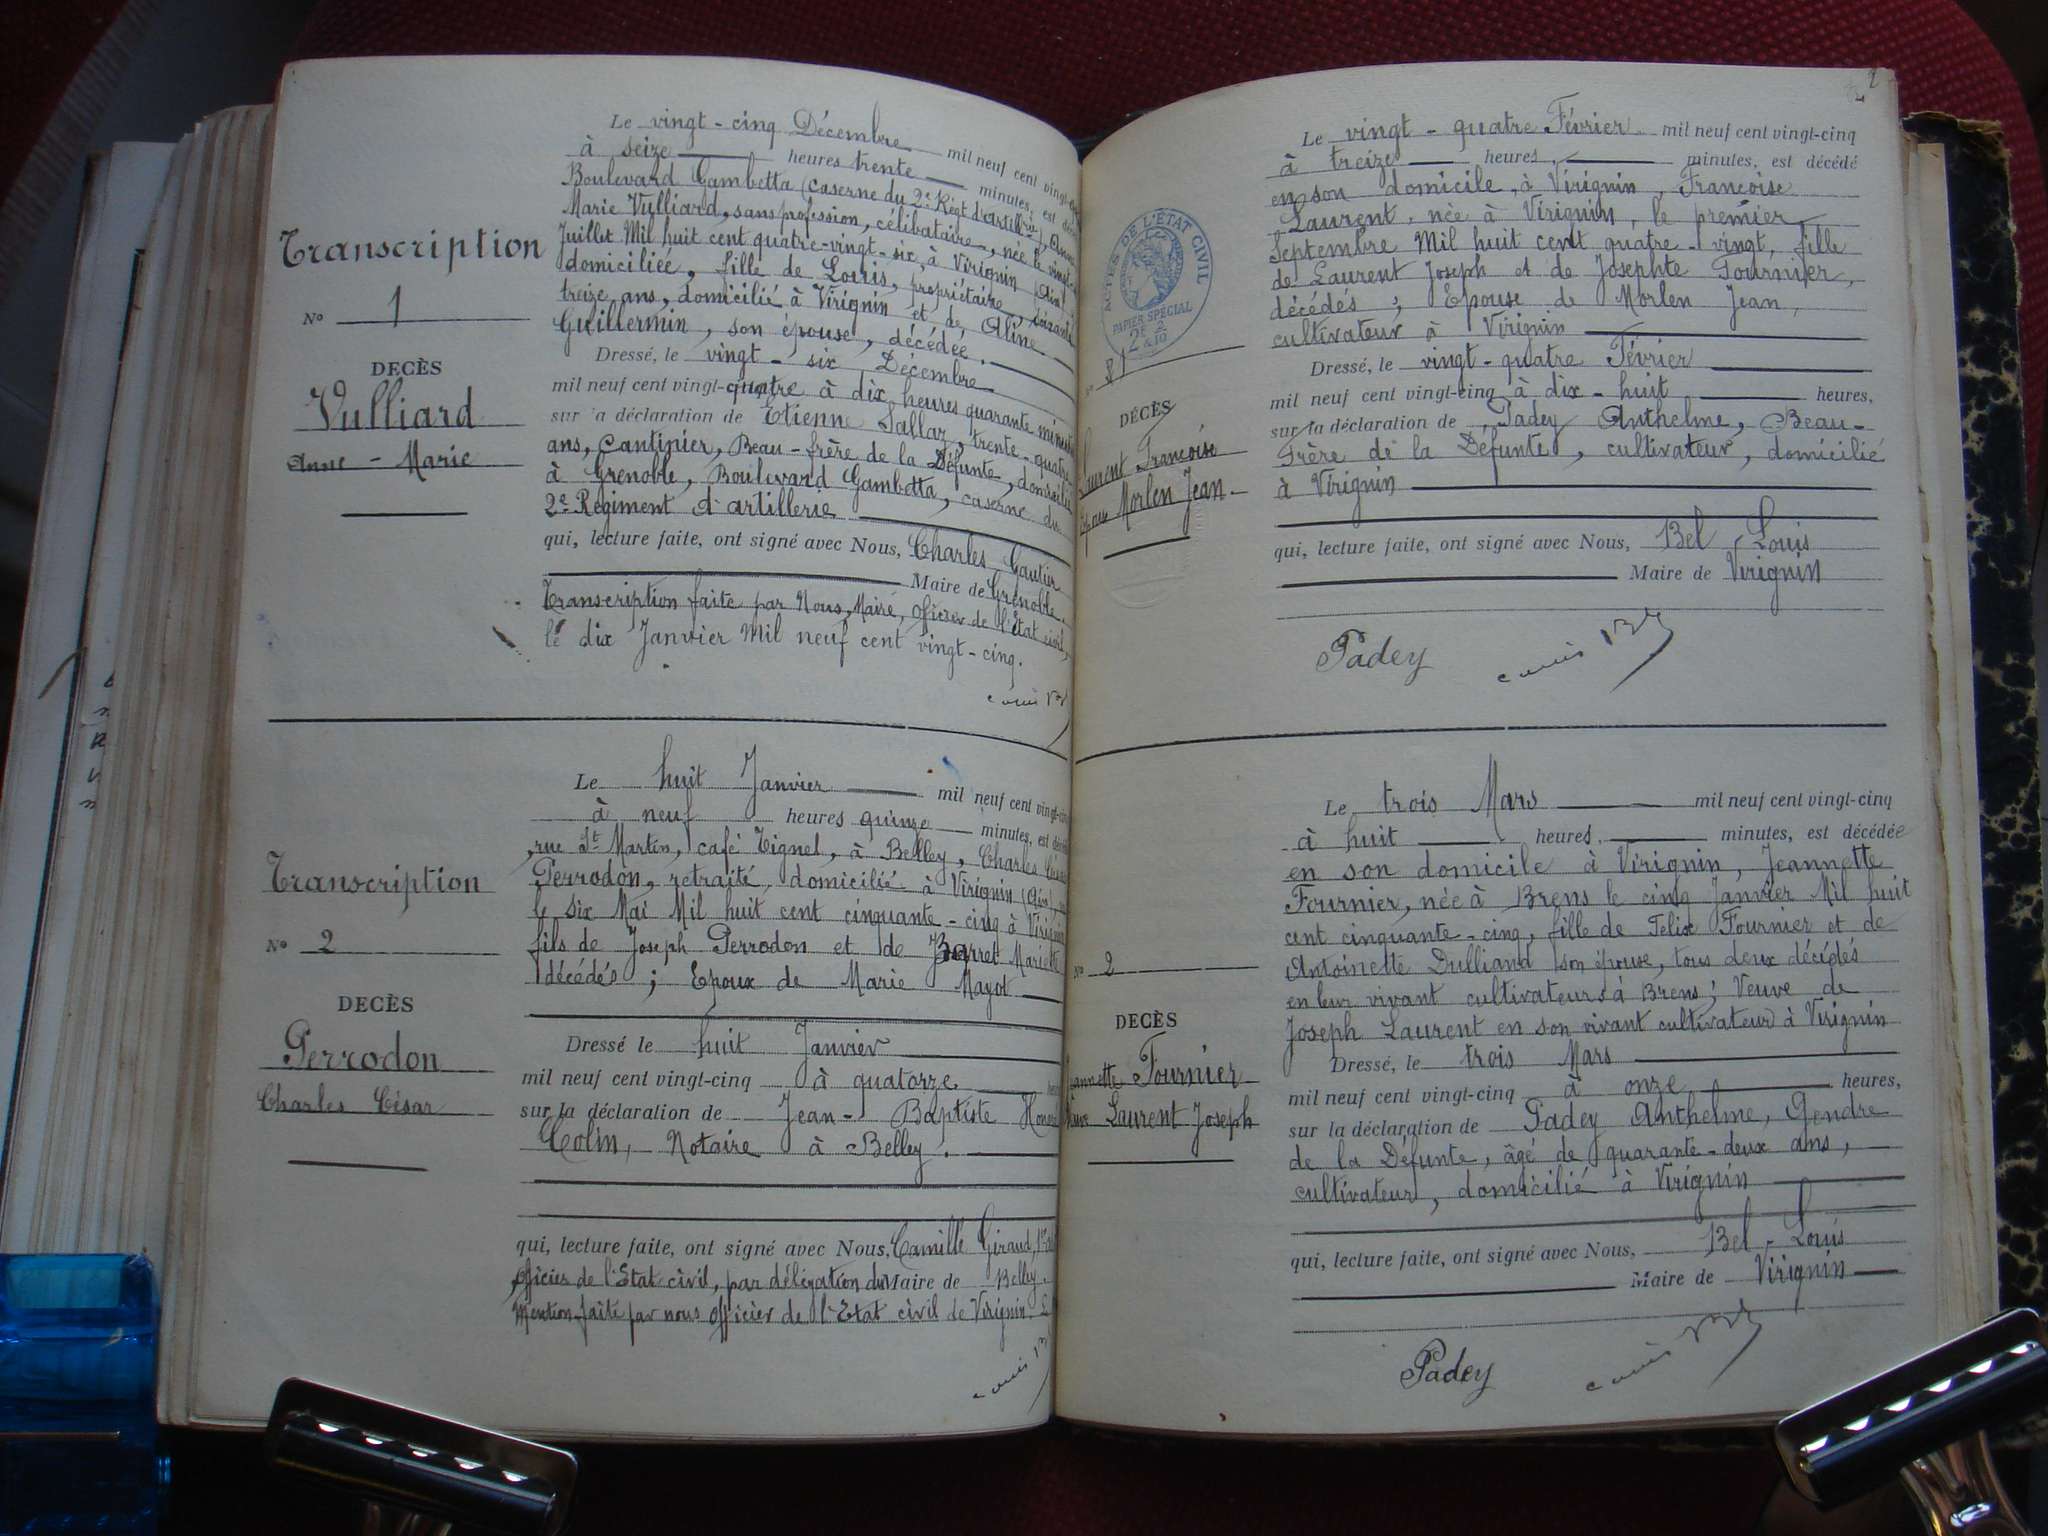 Transcription
N° 1
DECÈS
Vulliard
Anne - Marie
Le vingt-cinq Décembre mil neuf cent vingt-
à seize heures trente minutes, est
Boulevard Gambetta (caserne du 2e Régt d'artillrie), Anne
Marie Vulliard, sans profession, célibataire, née le vingt-
Juillet Mil huit cent quatre-vingt-six, à Virignin (Ain)
domiciliée, fille de Louis, propriétaire, soixante
treize ans, domicilié à Virignin et de Aline
Guillermin, son épouse, décédée.
Dressé, le vingt-six Décembre
mil neuf cent vingt-quatre à dix heures quarante minutes
sur la déclaration de Etienne Sallaz, trente-quatre
ans, Cantinier, Beau-frère de la Défunte, domicilié
à Grenoble, Boulevard Gambetta, caserne du
2e Régiment d'artillerie
qui, lecture faite, ont signé avec Nous, Charles Gautier
Maire de Grenoble.
Transcription faite par Nous, Maire, officier de l'État civil,
le dix Janvier Mil neuf cent vingt-cinq.
Transcription
N° 2
DECÈS
Perrodon
Charles César
Le huit Janvier mil neuf cent vingt-cinq
à neuf heures quinze minutes, est
rue St Martin, café Tignel, à Belley, Charles César
Perrodon, retraité, domicilié à Virignin (Ain),
le six Mai Mil huit cent cinquante-cinq à Virignin
fils de Joseph Perrodon et de Mariette
décédés ; Epoux de Marie Mayot
Dressé le huit Janvier
mil neuf cent vingt-cinq à quatorze
sur la déclaration de Jean-Baptiste
Colin, Notaire à Belley.
qui, lecture faite, ont signé avec Nous, Camille Giraud,
officier de l'Etat civil, par délégation du Maire de Belley.
Mention faite par nous officier de l'Etat civil de Virignin.
2
ACTES DE L'ÉTAT CIVIL
PAPIER SPÉCIAL
N° 1
DÉCÈS
Laurent Françoise
épouse Morlen Jean
Le vingt-quatre Février mil neuf cent vingt-cinq
à treize heures, minutes, est décédé
en son domicile, à Virignin, Françoise
Laurent, née à Virignin, le premier
Septembre Mil huit cent quatre-vingt, fille
de Laurent Joseph et de Josephte Fournier,
décédés ; Epouse de Morlen Jean,
cultivateur à Virignin
Dressé, le vingt-quatre Février
mil neuf cent vingt-cinq à dix-huit heures,
sur la déclaration de Padey Anthelme, Beau-
Frère de la Défunte, cultivateur, domicilié
à Virignin
qui, lecture faite, ont signé avec Nous, Bel Louis
Maire de Virignin
Padey
N° 2
DECÈS
Jeannette Fournier
veuve Laurent Joseph
Le trois Mars mil neuf cent vingt-cinq
à huit heures, minutes, est décédée
en son domicile à Virignin, Jeannette
Fournier, née à Brens le cinq Janvier Mil huit
cent cinquante-cinq, fille de Felix Fournier et de
Antoinette Dulliand son épouse, tous deux décédés
en leur vivant cultivateurs à Brens ; Veuve de
Joseph Laurent en son vivant cultivateur à Virignin
Dressé, le trois Mars
mil neuf cent vingt-cinq à onze heures,
sur la déclaration de Padey Anthelme, Gendre
de la Défunte, âgé de quarante-deux ans,
cultivateur, domicilié à Virignin
qui, lecture faite, ont signé avec Nous, Bel Louis
Maire de Virignin
Padey